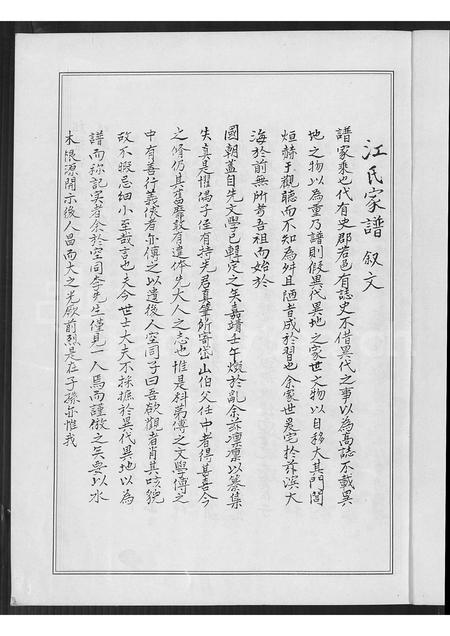 江氏家譜 叙文
譜家乘也代有史郡若邑有誌史不借異代之事以為高誌不載異
地之物以為重乃譜則假異代異地之家世文物以自移大其門閥
烜赫于觀聽而不知為舛且陋者成於習也余家世晃宅於茲濱大
海於前無所考吾祖而始於
國朝蓋自先文學已輯定之矣嘉靖壬午燬於亂余茲凜凜以纂集
失真是懼偶子侄有持先君真筆所寄岱山伯父任中者得甚喜今
之脩仍其舊幣敢有遺体先大人之志也惟是科第傳之文學傳之
中有善行義俠者亦傳之以遺後人空同子曰吾欲觀者肖其咳貌
故不暇忌細小至哉言也夫今世士大夫不採摭於異代異地以為
譜而祢記實者余於空同李先生僅見一人焉而謹倣之矣要以水
木限源開示後人昌而大之光啟前烈是在子孫亦惟我